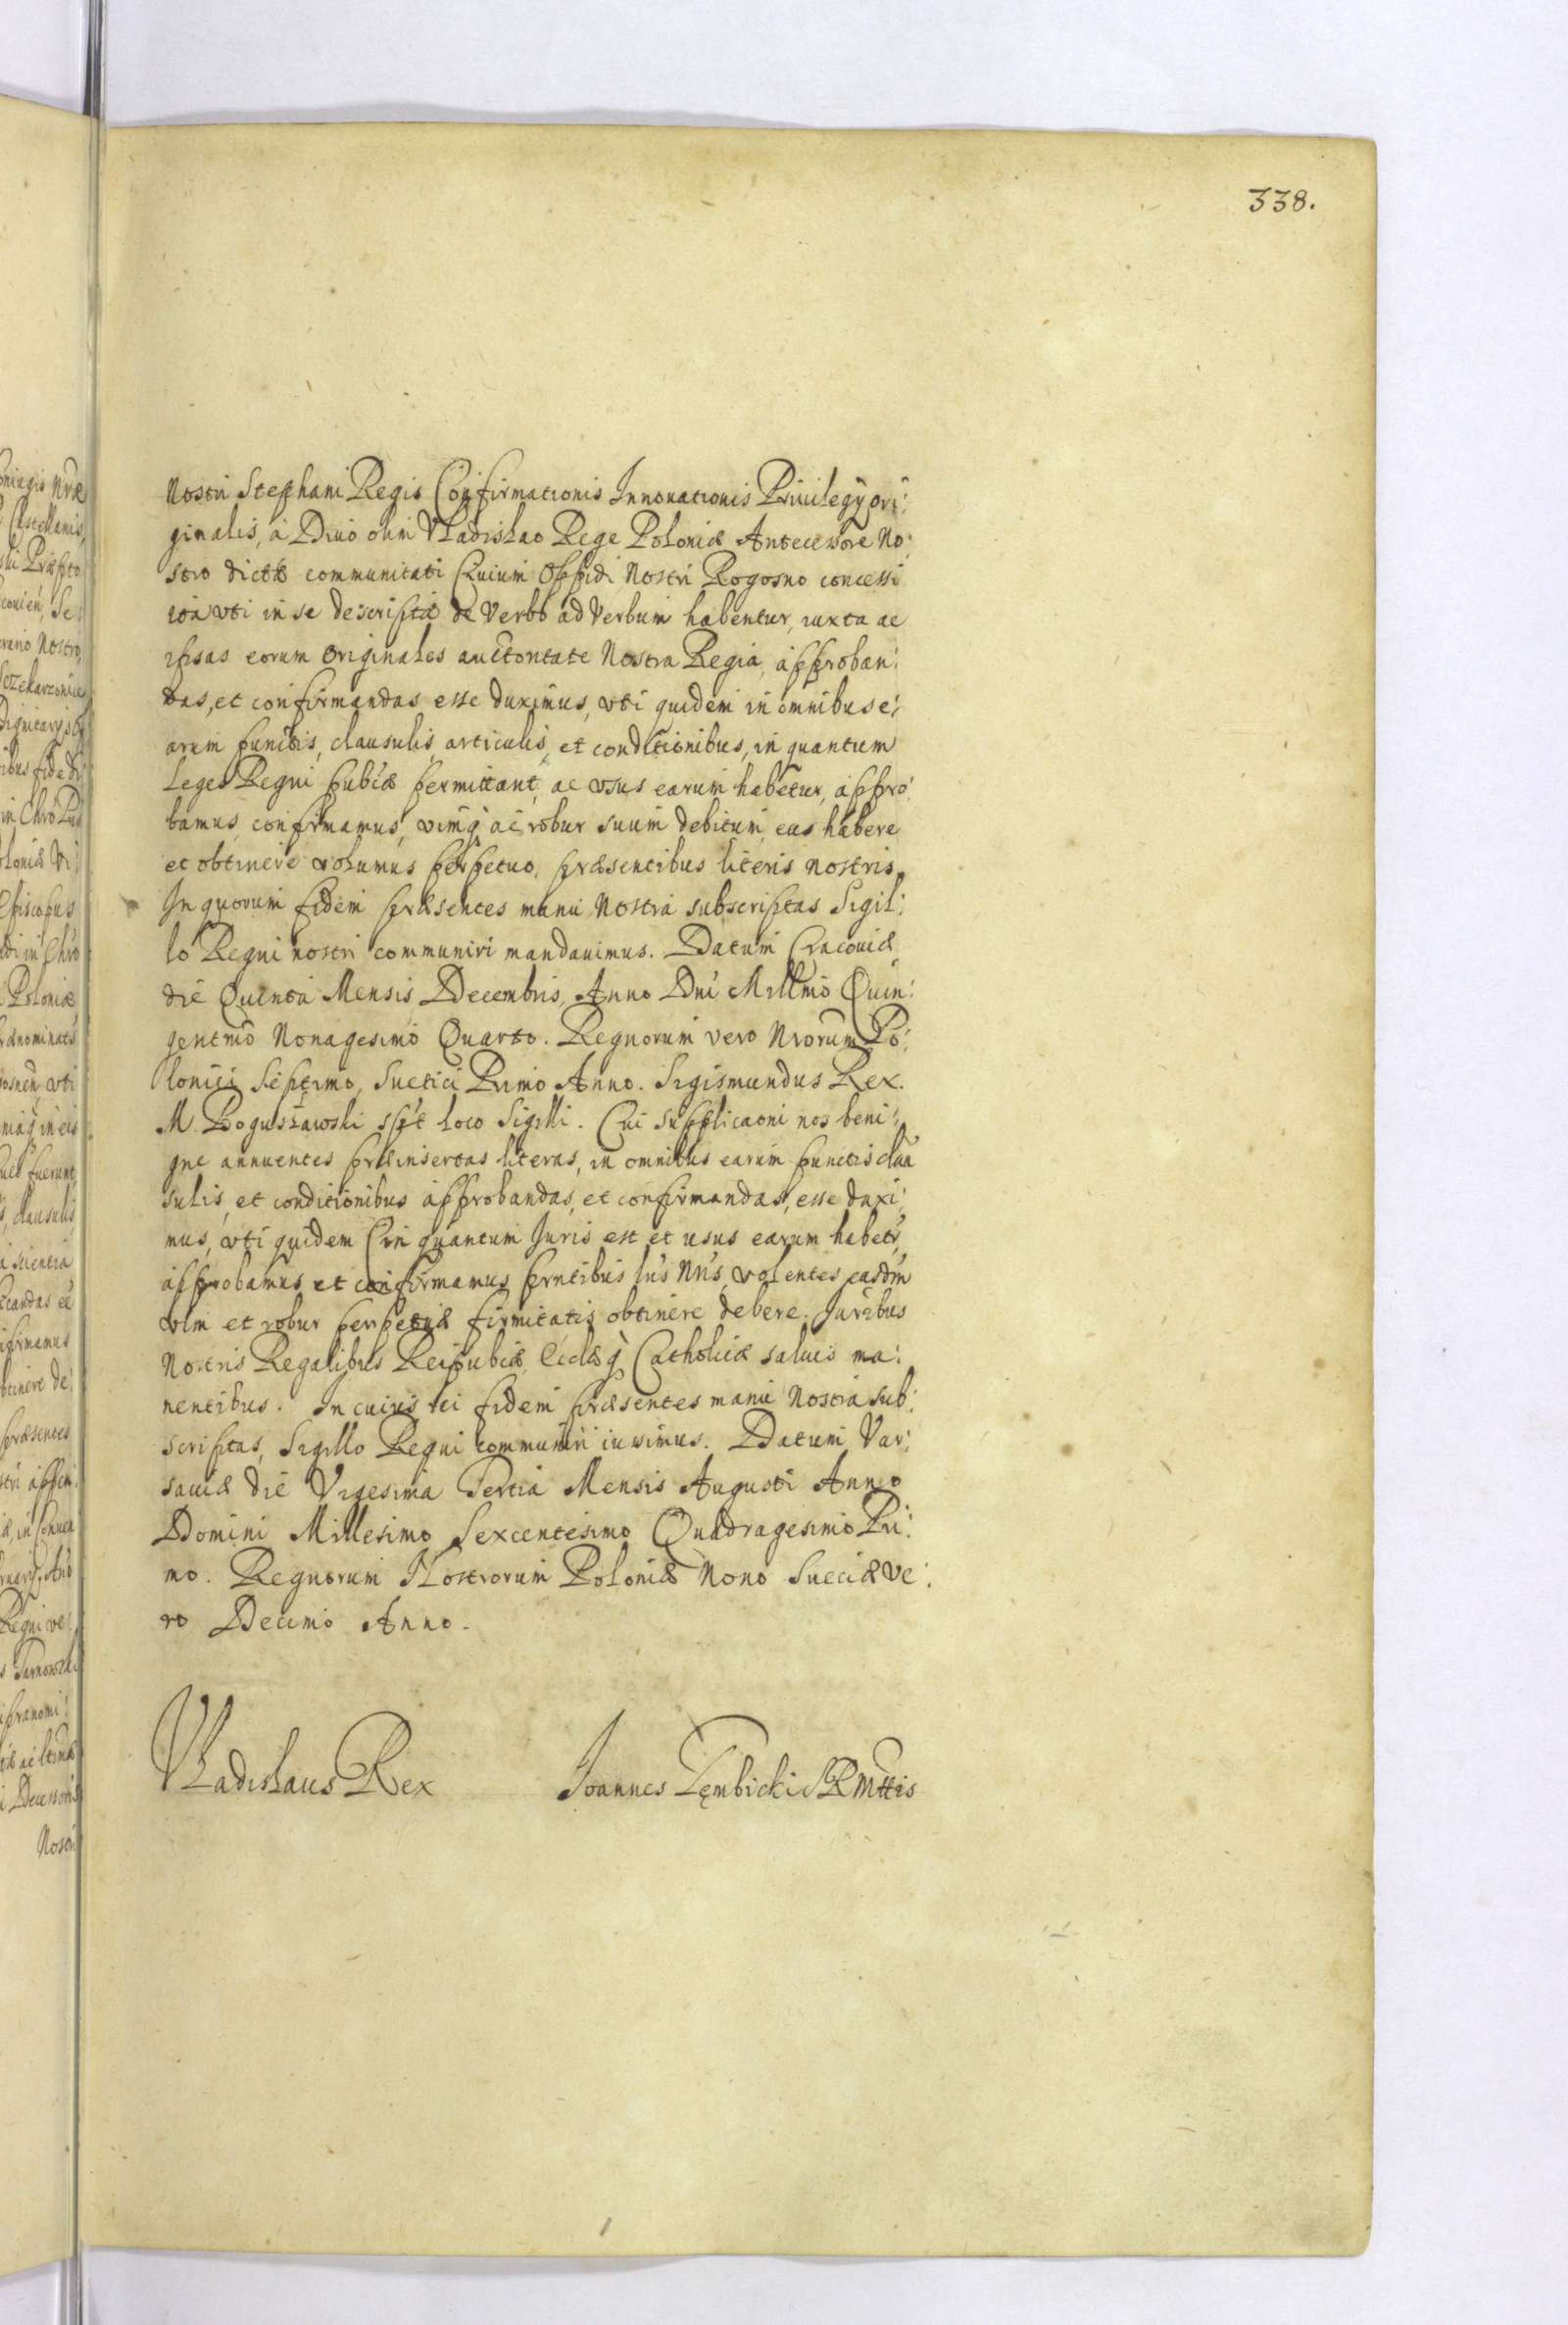 338.
Nostri Stephani Regis Confirmationis Innouationis Priuilegÿ ori:
ginalis, à Diuo olim Vladislao Rege Poloniæ Antecessore No:
stro dictæ communitati Ciuium Oppidi Nostri Rogosno concessi
ita vti in se descriptæ de Verbo ad Verbum habentur, iuxta ac
ipsas eorum originales auctoritate Nostra Regia, approban:
das, et confirmandas esse duximus, vti quidem in omnibus e:
arum punctis, clausulis, articulis, et conditionibus, in quantum
Leges Regni pub͂cæ permittant, ac vsus earum habetur, appro:
bamus, confirmamus, vimq́ ac robur suum debitum eas habere
et obtinere volumus perpetuo, præsentibus literis nostris.
In quorum fidem præsentes manu Nostra subscriptas Sigil:
lo Regni nostri communiri mandauimus. Datum Cracouiæ,
die Quinta Mensis Decembris, Anno Dni Millmo Quin:
gentmo Nonagesimo Quarto. Regnorum vero Nrorum Po:
lonici Septimo, Suetici Primo Anno. Sigismundus Rex.
M. Boguszawski sspt Loco Sigilli. Cui supplicaoni nos beni:
gne annuentes præinsertas literas, in omnibus earum punctis clau
sulis, et conditionibus approbandas, et confirmandas, esse duxi:
mus, vti quidem in quantum Juris est et usus earum habetr,
approbamus et confirmamus prntibus lris Nris, volentes easdm
vim et robur perpetuæ firmitatis obtinere debere. Juribus
Nostris Regalibus Reipubcæ, Ecclæq́ Catholicæ saluis ma:
nentibus. In cuius rei fidem præsentes manu Nostra sub:
scriptas, Sigillo Regni communiri iussimus. Datum Var:
sauiæ die Vigesima Tertia Mensis Augusti Anno
Domini Millesimo Sexcentesimo Quadragesimo Pri:
mo. Regnorum Nostrorum Poloniæ Nono Sueciæ ve:
ro Decimo Anno.
Vladislaus Rex Joannes Gęmbicki S R Mttis